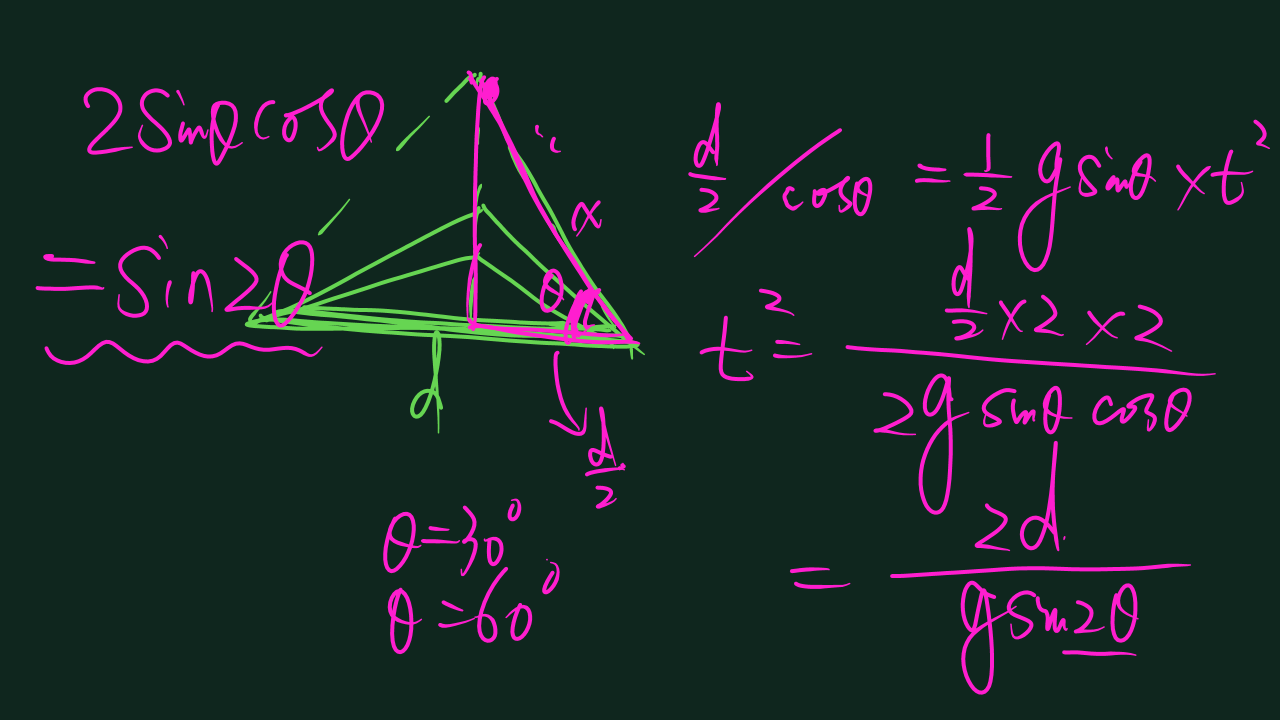 2sinθcosθ
=sin2θ
x
θ
d
d/2
θ=30°
θ=60°
d/2/cosθ = 1/2 g sinθ × t²
t² = d/2 × 2 × 2 / 2g sinθ cosθ
= 2d / g sin2θ